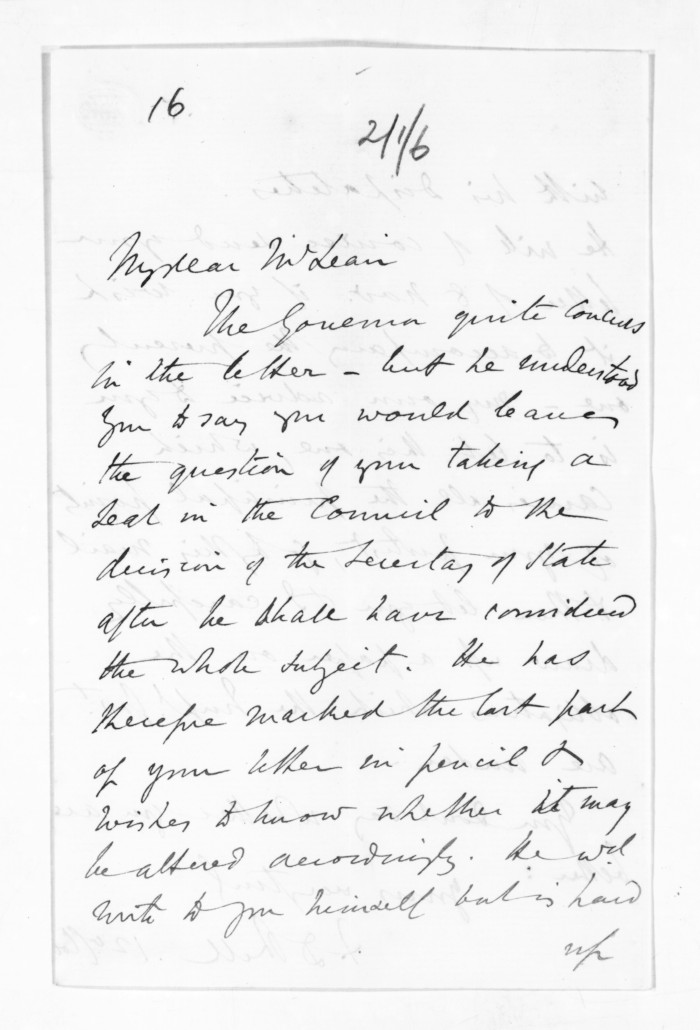 16
2/1/6
My dear McLean
The Governor quite concurs
in the letter - but he understood
you to say you would leave
the question of your taking a
seat in the Council to the
decision of the Secretary of State
after he shall have considered
the whole subject. He has
therefore marked the last part
of your letter in pencil &
wishes to know whether it may
be altered accordingly. He will
write to you himself but is hard
up